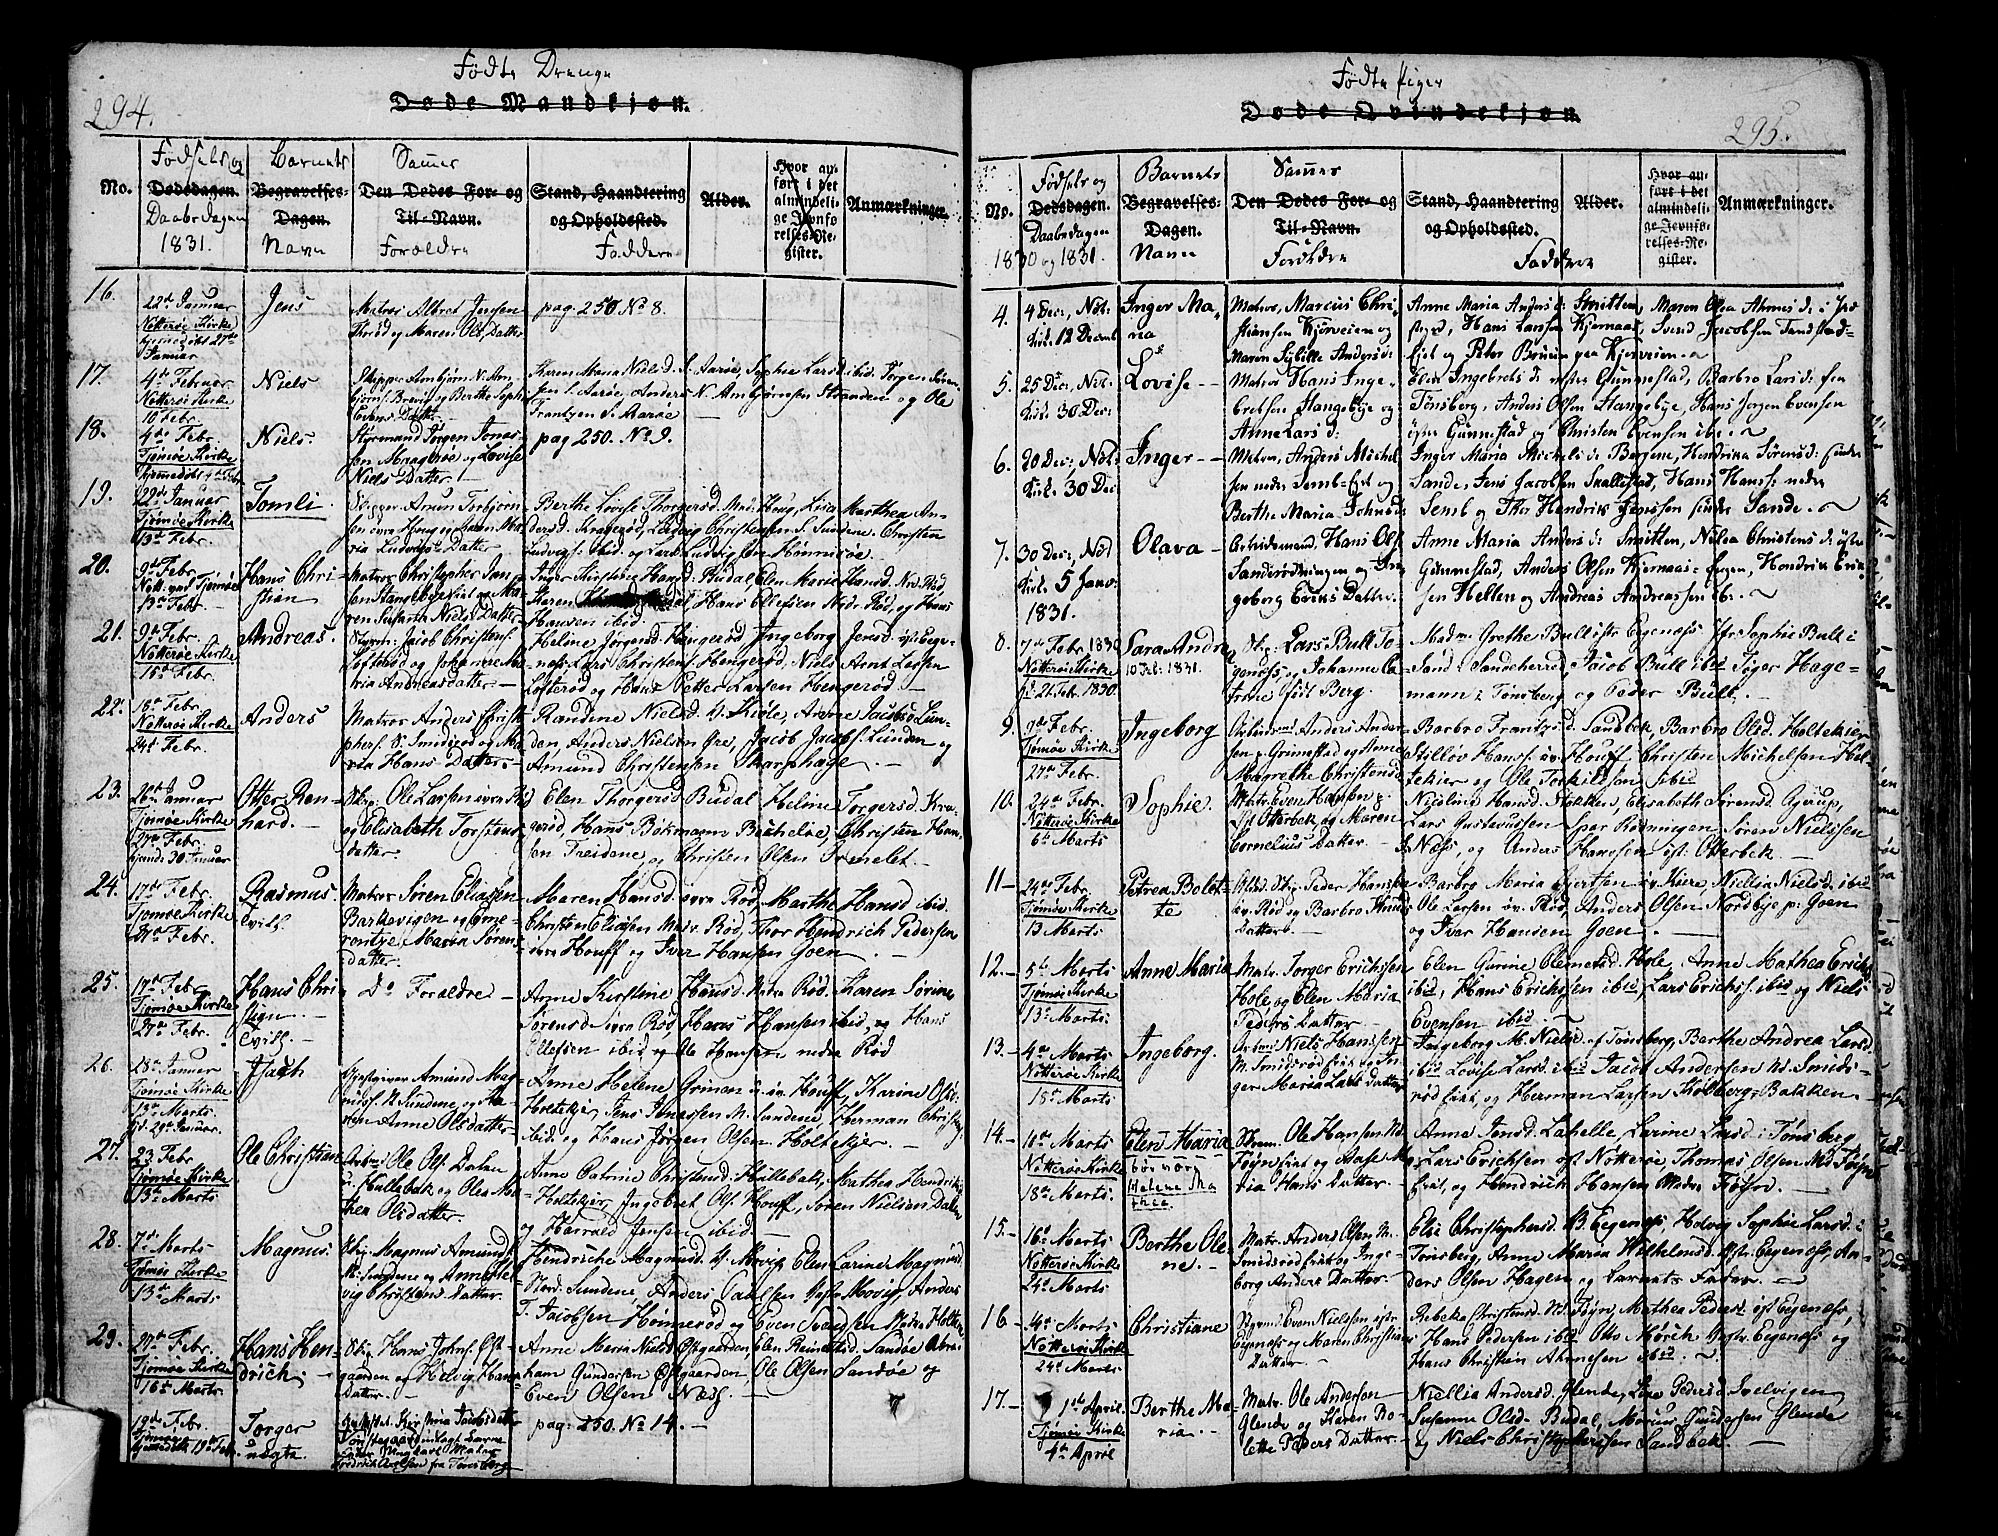 Fødte Drenge
294.
Døde Mandkjøn.
No.
Fødsels og
Dødsdagen.
Daabsdagen
1831.
Barnets
Begravelses-
Dagen.
Navn
Samer
Den Dødes For- og
Til-Navn.
Forældre
Stand, Haandtering
og Opholdssted.
Faddere
Alder.
Hvor an-
ført i det
almindeli-
ge Jevnfø-
relses-Re-
gister.
Anmærkninger.
16.
22de Januar
Nøtterøe Kirke
hjemmedøbt 27de
Januar
Jens
Matros Albret Jensen
og Maren Ols Datter
pag. 250 No 8.
17.
4de Februar
Nøtterøe Kirke
10 Febr.
Niels
Skipper Ambjørn N. Am-
bjørns. og Berthe Sophie
Evens Datter
Karen Maria Nielsd. S. Aarøe, Sophie Larsd ibid. Jørgen Søren-
sen S. Aarøe, Anders N. Ambjørnsen Stranden og Ole
Frantzen S. Aarøe
18.
4de Febr.
Tjømøe Kirke
Niels.
Styrmand Jørgen Jonas-
sen Maagerøe og Lovise
Niels Datter
pag 250. No 9.
19.
22de Januar
Tjømøe Kirke
13de Febr.
Tomli
Skipper Amun Torbjørn-
sen øvre Houg og Karen Ma-
ria Ludvigs Datter
Berthe Lovise Thorgersd. Houg, Lisa Marthea An-
dersd. Kragerød, Ludvig Christensen S. Sundene, Christen
Ludvigs. ibid. og Lars Ludvigsen Hønnerøe
20.
9de Febr.
13de Febr.
Hans Chri-
stian
Matros Christopher Jan-
sen og Ma-
ren Susanna Niels Datter
Inger Kirstine Hansd. Budal, Elen Marie Hansd. Ned. Rød,
Karen Hans Ellefsen Ned. Rød, og Hans
Hansen ibid.
21.
9de Febr.
Nøtterøe Kirke
15de Febr.
Andreas.
Jacob Christens.
Løfterød og Johanne Ma-
tria Andreasdatter
Helene Jørgensd. Hengerød, Ingeborg Jensd. øst Eege-
næs, Lars Christens. Hengerød, Niels Arnt Larsen
Løfterød og Hans Petter Larsen Hengerød.
22.
18de Febr.
Nøtterøe Kirke
24de Febr.
Anders
Matros Anders Christo-
phers. S. Smidsrød og Ma-
ria Hans Datter
Randine Nielsd. V. Kiøle, Anne Jacobsd Lun-
den, Anders Nielsen Gre, Jacob Jacobs. Lunden og
Amund Christensen Skarphage.
23.
26de Januar
Tjømøe Kirke
27de Febr.
hjemd. 30 Januar
Otter Ren-
hard.
Skip: Ole Larsen øvre Rød
og Elisabeth Torstens
datter.
Elen Thorgersd Budal, Heline Torgersd. Kra-
gerød, Hans Bøkmann Buskeløe, Christen Han-
sen Treidene, og Christen Olsen Grenelet.
24.
17de Febr.
Tjømøe Kirke
27de Febr.
Rasmus
Tvill.
Matros Søren Eliasen
Barkevigen og Eme-
rentse Maria Søren-
datter
Maren Hansd. øvre Rød, Marthe Hansd. ibid.
Christen Eliasen Nedr. Rød, Thor Hendrich Pedersen
øvre Houff og Iver Hansen Goen.
25.
17de Febr
Tjømøe Kirke
27de Febr.
Hans Chri
stian.
Tvill.
Do Forældre
Anne Kirstine Hansd. Nedre Rød, Karen Sørine
Sørensd øvre Rød, Hans Hansen ibid, og Hans
Ellefsen ibid og Ole Hansen nedre Rød
26.
28de Januar
Tjømøe Kirke
13de Marts
hd. 29de Januar.
Isach
Gjestgiver Amund Mag-
nussen N. Sundene, og Ka-
ren Anne Olsdatter
Anne Helene Grimen øv. Houff, Karine Olsd.
Holtekjær, Jens Jonassen N. Sundene, Herman Christens
ibid. og Hans Jørgen Olsen Holtekjær.
27.
23 Febr
Tjømøe Kirke
13de Marts
Ole Christian
Arbm. Ole Ols. Dalen
i Hullebak og Olea Ma-
thea Olsdatter.
Anne Catrine Christensd Hullebak, Mathea Hendriks
Holtekjær, Ingebret Ols. Houff, Søren Nielsen Dalen
og Harrald Jensen ibid
28.
7de Marts
Tjømøe Kirke
13de Marts
Magnus
Skip. Magnus Amunds.
N. Sundene og Anne Hel-
vig Christens Datter
Hendriche Magnusd. V. Movig, Elen Larine Magnusd.
Nord. Sundene, Anders Paulsen Vestre Movig, Anders
T. Jacobsen Hønnerød og Even Svendsen Nedre Holtan
29.
27de Febr.
Tjømøe Kirke
16de Marts
Hans Hen-
drich.
Skip. Hans Johns. Øst-
gaarden og Helvig Hans
Datter.
Anne Maria Nielsd Østgaarden, Elen Reinertsd. Sandøe, Abra-
ham Gundersen Østgaarden, Ole Olsen Sandøe og
Even Olsen Næss.
19de Febr.
Tjømøe
hjemmedøbt 19de Febr.
Torger
uægte
Kirstina Jacobsdatter
udlagt Barne-
fader Ungkarl Matros
Fredrich Axelsen fra Tønsberg
pag. 250. No 14.
Fødte Piger
295.
Døde Qvindekjøn.
No.
Fødsels og
Dødsdagen.
Daabsdagen
1830 og 1831.
Barnets
Begravelses-
Dagen.
Navn
Samer
Den Dødes For- og
Til-Navn.
Forældre
Stand, Haandtering
og Opholdssted.
Faddere
Alder.
Hvor an-
ført i det
almindeli-
ge Jevnfø-
relses-Re-
gister.
Anmærkninger.
4.
4 Dec., Nøt.
Kirk. 12 Decemb
Inger Ma-
ria
Matros, Marcus Chri-
stiansen Kjørveien og
Maren Sybille Anders d:
Anne Maria Anders d: Smitten, Maren Olea Ahnes d:
Hans Larssen Kjernaas, Svend Jacobsen Sandstad-
fjet og Peter Bruun paa Kjerveien.
5.
25 Dec., Nøt.
Kirk. 30 Dec:
Lovise
Matros Hans Inge-
bretsen Hangebye og
Anne Lars d:
Elen Ingebrets d: østre Gunnestad, Barbro Lars d: fra
Tønsberg, Anders Olsen Hangebye, Hans Jorgen Evensen
østre Gunnestad og Christen Evensen ibid.
6.
20 Dec: Nøt:
Kirk. 30 Dec
Inger
Matros, Anders Michel
sen nedre Semb Eiet og
Berthe Maria Johns d:
Inger Maria Michels d: Bergene, Hendrika Sørens d:
Sande, Jens Jacobsen Skallestad, Hans Hanss: nedre
Semb og Thor Hendrik Jenssen Sande.
7.
30 Dec:, Nød
Kirk. 5 Janr.
1831.
Olava
Arbeidsmand, Hans Ols.
Sanderødningen og In-
geborg Eriks Datter.
Anne Maria Anders d: Smitten, Nilea Christens d: østre
Gunnestad, Anders Olsen Kjernaas Eugen, Hendrik Erik-
sen Hellen og Andreas Andreassen ibid.
8.
7de Febr. 1830
Nøtterøe Kirke
21 Febr. 1830.
Sara Andrea
10 Jul. 1831.
Skip. Lars Bull Ee-
genæs, og Johanne Ca-
trine Berg.
Madm Grethe Bull østre Eegenæs, Jfr. Sophie Bull i
Sand i Sandeherred, Jacob Bull ibid. Tiger Hage-
mann i Tønsberg og Peder Bull.
9.
9de Febr.
Tjømøe Kirke
27de Febr.
Ingeborg
Arbeidsmd. Anders Ander-
sen p. Grimestad og Anne
Magrethe Christensd
Barbro Frantzd. Sandbek, Barbro Olsd. Holtekjær
Stillov Hanss. øv. Houff, Christen Michelsen Hol-
tekier og Ole Torkildsen ibid
10.
24de Febr.
Nøtterøe Kirke
6te Marts
Sophie.
Matr. Even Hansen p.
øst Otterbek og Maren
Cornelius Datter
Nicoline Hansd. Stokken, Elisabeth Sørensd. Gjerup,
Lars Gustavussen Spar Rødningen, Søren Nielssen
Næss, og Anders Hanssen øst: Otterbek.
11
24de Febr.
Tjømøe Kirke
13 Marts
Petrea Bolet-
te
Peder Hansen
øv. Rød og Barbro Knuds
Datter
Barbro Maria Giertsen, Nillia Nielsd. ibid
Ole Larsen øv. Rød, Anders Olsen Nordbye p. Goen
og Iver Hansen Goen.
12.
5te Marts
Tjømøe Kirke
13de Marts.
Anne Maria
Matr. Torger Erichssen
Hole og Elen Maria
Peders Datter
Elen Gurine Clemetsd. Hole, Anne Mathea Erichs
ibid, Hans Erichssen ibid, Lars Erichss. ibid og Niels
Evensen ibid
13.
4de Marts
Nøtterøe Kirke
18de Marts
Ingeborg.
Niels Hanssen
N. Smidsrød Eiet og In-
ger Maria Lars datter
Ingeborg M. Nielsd. af Tønsberg, Berthe Andrea Larsd
ibid. Lovise Larsd. ibid Jacob Andersen Nd. Smids-
rød Eiet, og Herman Larsen Kolbergs Bakken.
14.
10de Marts
Nøtterøe Kirke
18de Marts
Elen Maria
bør være
Helene Ma
thea.
Ole Hansen Nd.
Føyn Eiet og Aase Ma-
ria Hans Datter.
Anne Jensd. Lahelle, Larine Larsd. i Tønsberg,
Lars Erichsen øst Nøtterøe, Thomas Olsen Nd Føyn
Eiet, og Hendrich Hansen Nedre Føyn.
15.
16de Marts
Nøtterøe Kirke
24de Marts
Berthe Ole-
ne.
Matr. Anders Olsen N.
Smidsrød Eiet og Inge-
borg Anders Datter.
Elie Christophersd. V. Eegenæs, Helvig Sophie Larsd. i
Tønsberg, Anne Maria Wilhelmsd. Østr. Eegenæs, An-
ders Olsen Hagen og Barnets Fader.
16
14de Marts
Nøtterøe Kirke
24de Marts
Christiane
Even Nielsen østre
Eegenæs og Maren Christians
Datter
Rebeka Christensd. Nd. Føyn, Mathea Pedersd. øst Eegenæs,
Hans Pedersen ibid Otto Mørch Østr. Eegenæs og
Hans Christian Ahmesen ibid.
17.
1ste April
Tjømøe Kirke
4de April
Berthe Ma-
ria.
Matr. Ole Anderssen
Glende og Karen Bo-
lette Peders Datter.
Niellia Andersd. Glende, Lise Pedersd. Selvigen,
Susanne Olsd. Budal, Marius Gundersen Glende
og Niels Christophersen Sandbek.